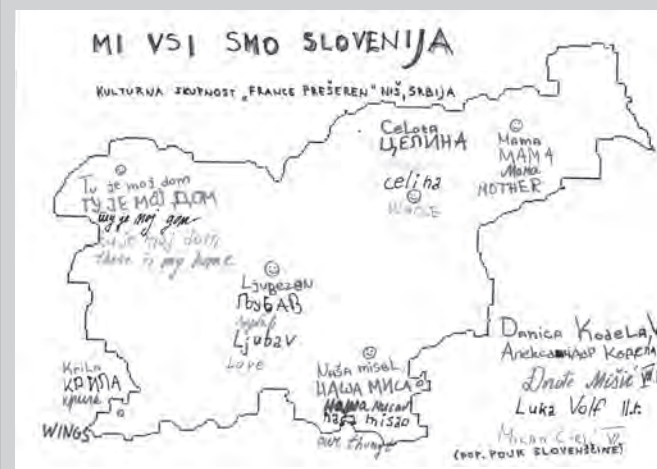 MI VSI SMO SLOVENIJA
KULTURNA SKUPNOST „FRANCE PREŠEREN" NIŠ, SRBIJA
Celota
ЦЕЛИНА
celina
WHOLE
Mama
МАМА
Мама
MOTHER
Tu je moj dom
ТУ ЈЕ МОЈ ДОМ
ту је мој дом
tu je moj dom
there is my home
Ljubezen
ЉУБАВ
љубав
Ljubav
Love
Krila
КРИЛА
крила
WINGS
Naša misel
НАША МИСАО
Наша мисао
naša misao
our thught
Danica Kodela, V
Александар Кодела
Đorđe Mišić VII
Luka Volf II.r.
(DOP. POUK SLOVENŠČINE)